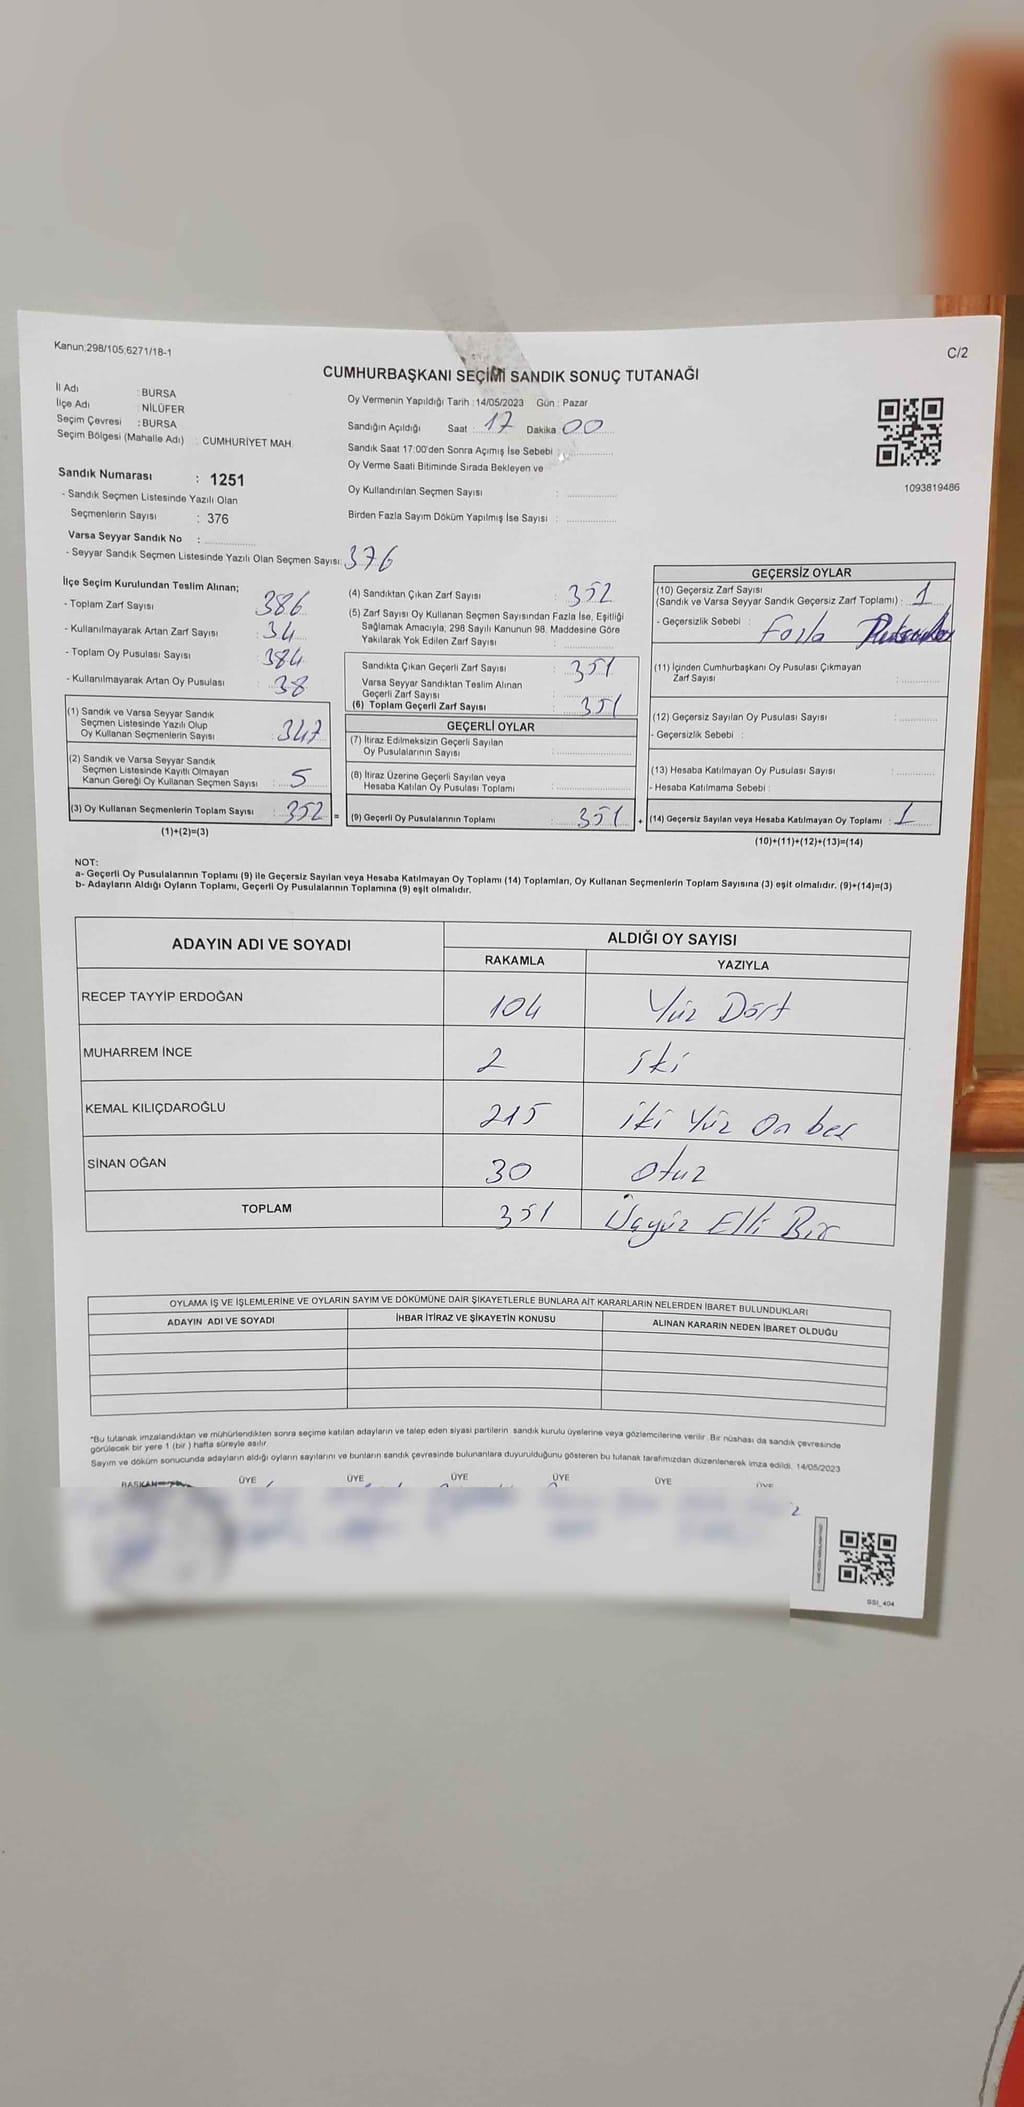 Kanun;298/105;6271/18-1
C/2
CUMHURBAŞKANI SEÇİMİ SANDIK SONUÇ TUTANAĞI
İl Adı : BURSA
İlçe Adı : NİLÜFER
Seçim Çevresi : BURSA
Seçim Bölgesi (Mahalle Adı) : CUMHURİYET MAH.
Oy Vermenin Yapıldığı Tarih : 14/05/2023 Gün : Pazar
Sandığın Açıldığı Saat : 17 Dakika : 00
Sandık Saat 17:00'den Sonra Açımış İse Sebebi :
Oy Verme Saati Bitiminde Sırada Bekleyen ve
Oy Kullandırılan Seçmen Sayısı :
Birden Fazla Sayım Döküm Yapılmış İse Sayısı :
1093819486
Sandık Numarası : 1251
- Sandık Seçmen Listesinde Yazılı Olan
Seçmenlerin Sayısı : 376
Varsa Seyyar Sandık No :
- Seyyar Sandık Seçmen Listesinde Yazılı Olan Seçmen Sayısı: 376
İlçe Seçim Kurulundan Teslim Alınan;
- Toplam Zarf Sayısı : 386
- Kullanılmayarak Artan Zarf Sayısı : 34
- Toplam Oy Pusulası Sayısı : 384
- Kullanılmayarak Artan Oy Pusulası : 38
(1) Sandık ve Varsa Seyyar Sandık
Seçmen Listesinde Yazılı Olup
Oy Kullanan Seçmenlerin Sayısı : 347
(2) Sandık ve Varsa Seyyar Sandık
Seçmen Listesinde Kayıtlı Olmayan
Kanun Gereği Oy Kullanan Seçmen Sayısı : 5
(3) Oy Kullanan Seçmenlerin Toplam Sayısı : 352 =
(1)+(2)=(3)
(4) Sandıktan Çıkan Zarf Sayısı : 352
(5) Zarf Sayısı Oy Kullanan Seçmen Sayısından Fazla İse, Eşitliği
Sağlamak Amacıyla, 298 Sayılı Kanunun 98. Maddesine Göre
Yakılarak Yok Edilen Zarf Sayısı :
Sandıkta Çıkan Geçerli Zarf Sayısı : 351
Varsa Seyyar Sandıktan Teslim Alınan
Geçerli Zarf Sayısı :
(6) Toplam Geçerli Zarf Sayısı : 351
GEÇERLİ OYLAR
(7) İtiraz Edilmeksizin Geçerli Sayılan
Oy Pusulalarının Sayısı :
(8) İtiraz Üzerine Geçerli Sayılan veya
Hesaba Katılan Oy Pusulası Toplamı :
(9) Geçerli Oy Pusulalarının Toplamı : 351 +
GEÇERSİZ OYLAR
(10) Geçersiz Zarf Sayısı
(Sandık ve Varsa Seyyar Sandık Geçersiz Zarf Toplamı) : 1
- Geçersizlik Sebebi : Fazla
(11) İçinden Cumhurbaşkanı Oy Pusulası Çıkmayan
Zarf Sayısı :
(12) Geçersiz Sayılan Oy Pusulası Sayısı :
- Geçersizlik Sebebi :
(13) Hesaba Katılmayan Oy Pusulası Sayısı :
- Hesaba Katılmama Sebebi :
(14) Geçersiz Sayılan veya Hesaba Katılmayan Oy Toplamı : 1
(10)+(11)+(12)+(13)=(14)
NOT:
a- Geçerli Oy Pusulalarının Toplamı (9) ile Geçersiz Sayılan veya Hesaba Katılmayan Oy Toplamı (14) Toplamları, Oy Kullanan Seçmenlerin Toplam Sayısına (3) eşit olmalıdır. (9)+(14)=(3)
b- Adayların Aldığı Oyların Toplamı, Geçerli Oy Pusulalarının Toplamına (9) eşit olmalıdır.
ADAYIN ADI VE SOYADI ALDIĞI OY SAYISI
RAKAMLA YAZIYLA
RECEP TAYYİP ERDOĞAN 104 Yüz Dört
MUHARREM İNCE 2 iki
KEMAL KILIÇDAROĞLU 215 iki Yüz On beş
SİNAN OĞAN 30 Otuz
TOPLAM 351 Üçyüz Elli Bir
OYLAMA İŞ VE İŞLEMLERİNE VE OYLARIN SAYIM VE DÖKÜMÜNE DAİR ŞİKAYETLERLE BUNLARA AİT KARARLARIN NELERDEN İBARET BULUNDUKLARI
ADAYIN ADI VE SOYADI İHBAR İTİRAZ VE ŞİKAYETİN KONUSU ALINAN KARARIN NEDEN İBARET OLDUĞU
*Bu tutanak imzalandıktan ve mühürlendikten sonra seçime katılan adayların ve talep eden siyasi partilerin sandık kurulu üyelerine veya gözlemcilerine verilir. Bir nüshası da sandık çevresinde
görülecek bir yere 1 (bir ) hafta süreyle asılır.
Sayım ve döküm sonucunda adayların aldığı oyların sayılarını ve bunların sandık çevresinde bulunanlara duyurulduğunu gösteren bu tutanak tarafımızdan düzenlenerek imza edildi. 14/05/2023
BAŞKAN ÜYE ÜYE ÜYE ÜYE ÜYE ÜYE
SSI_404